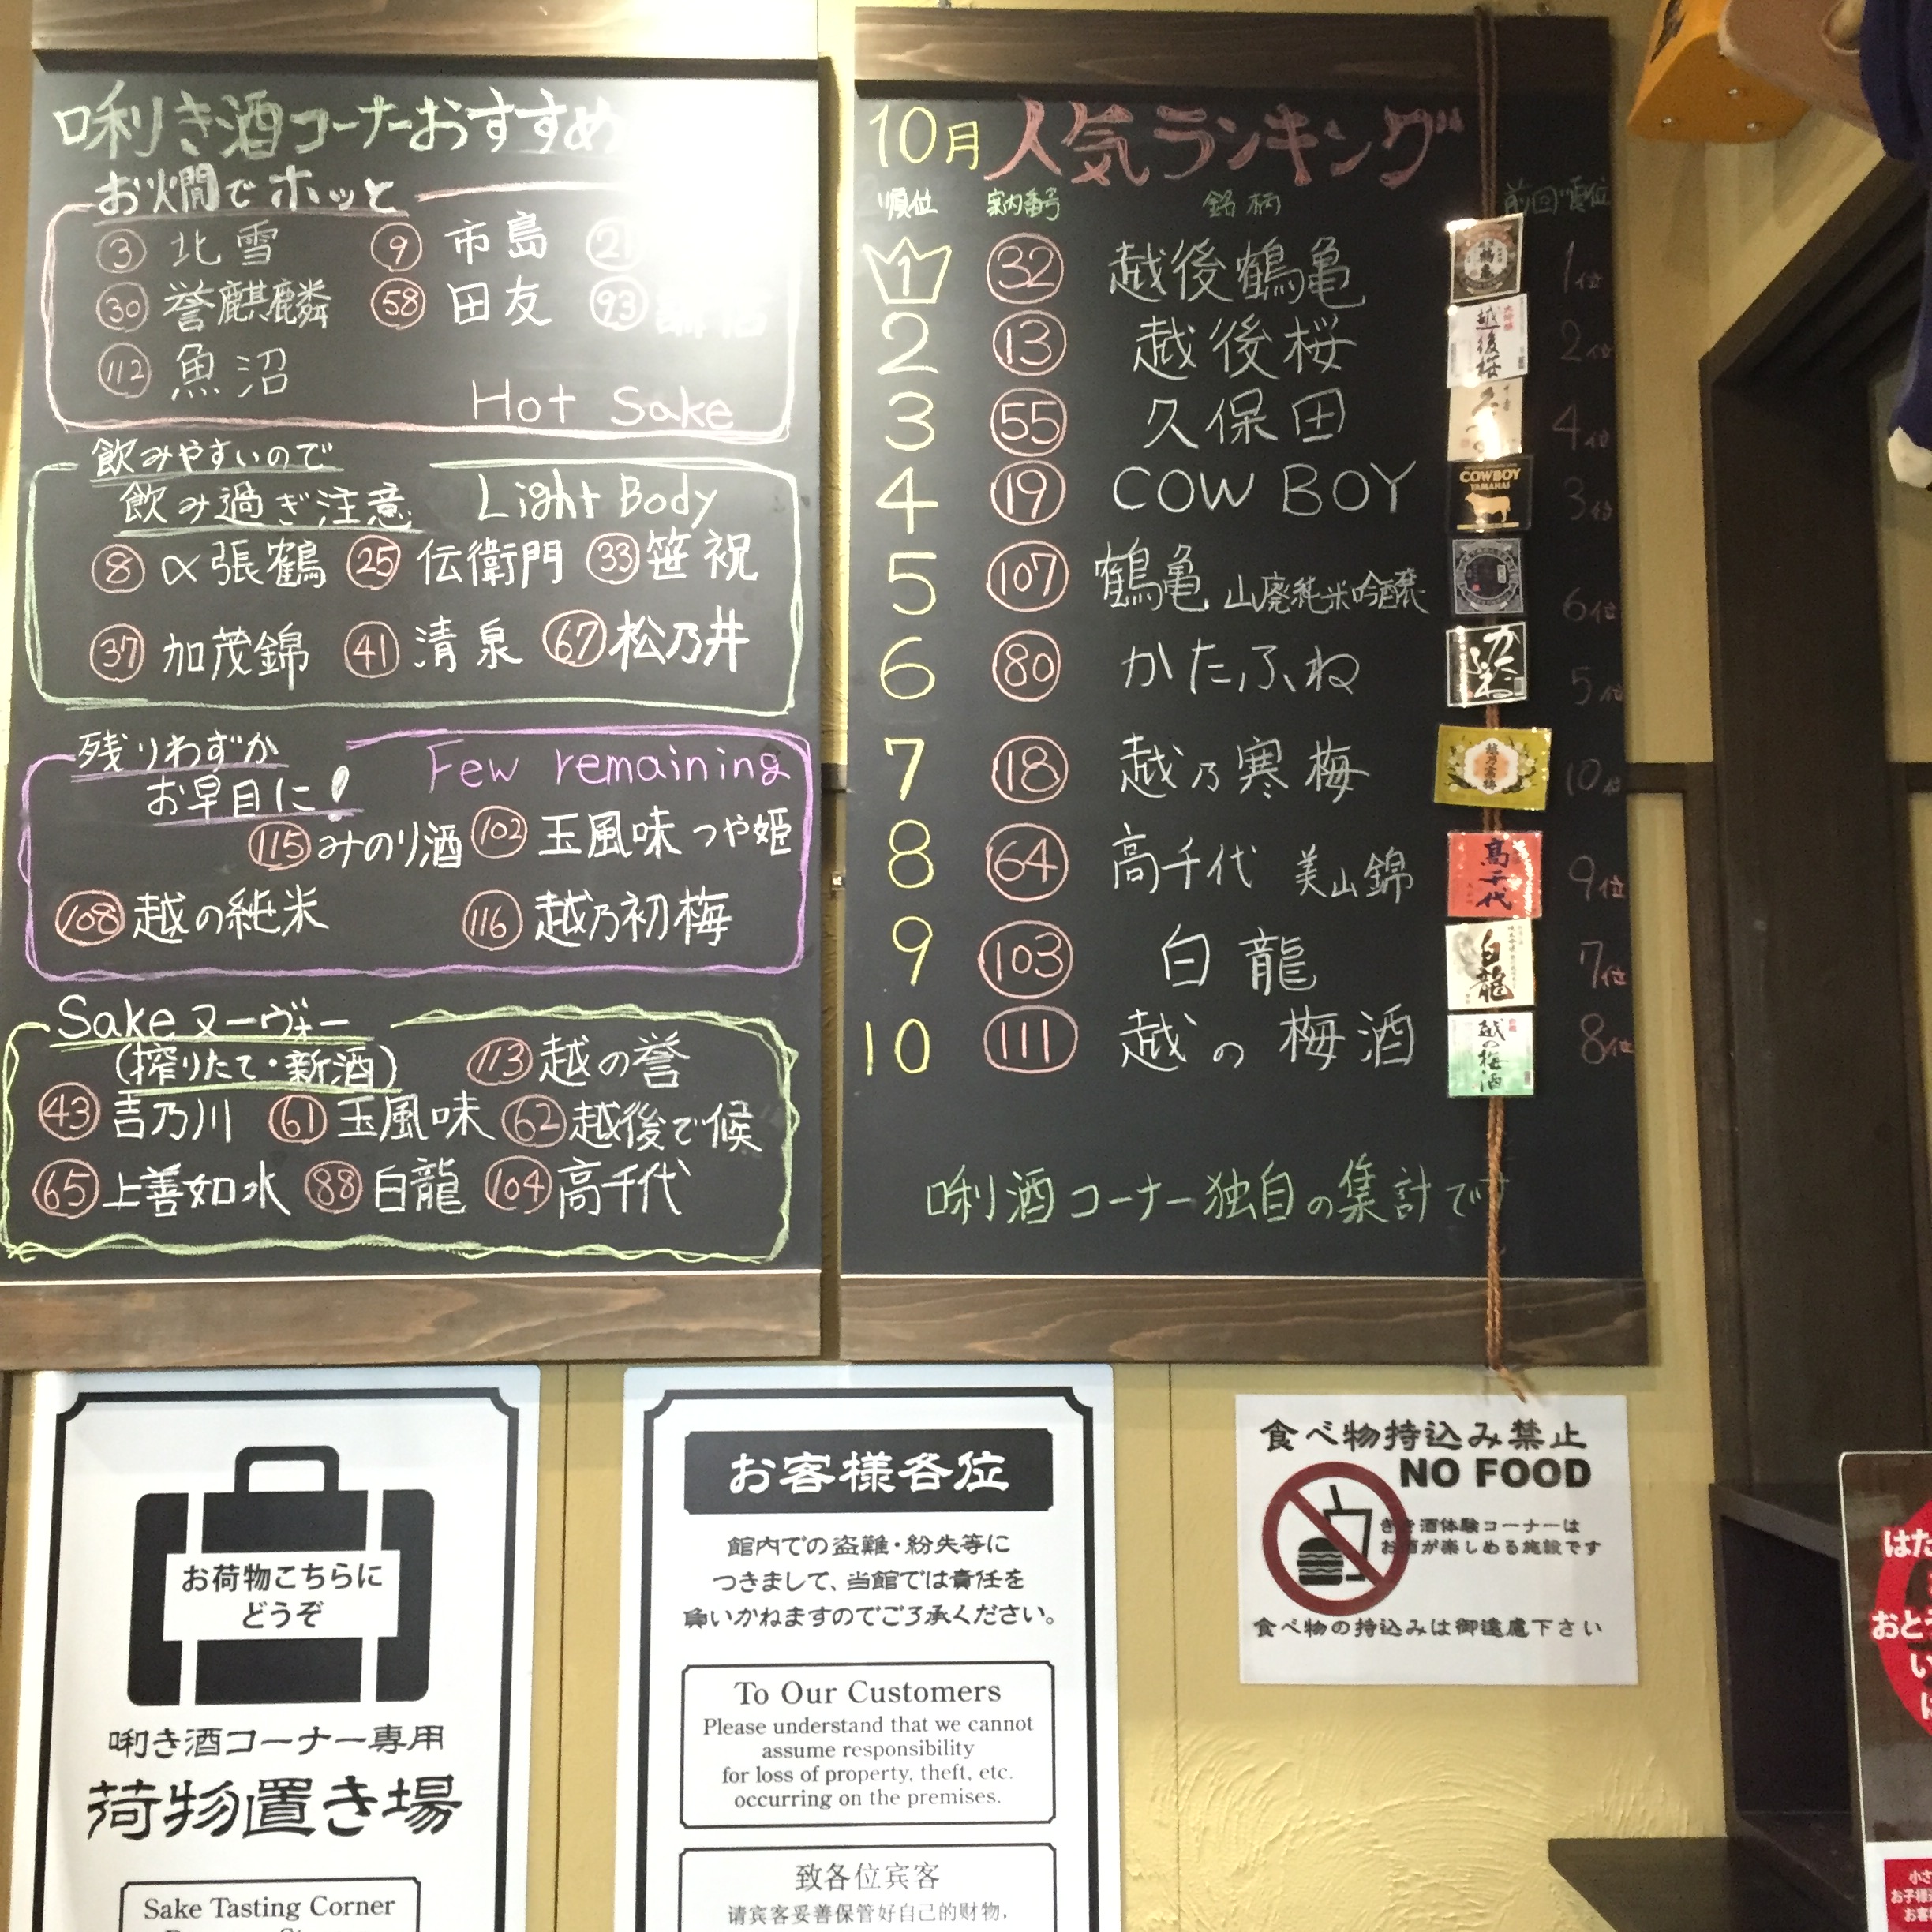 唎き酒コーナーおすすめ
お燗でホッと
3 北雪 9 市島 21
30 誉麒麟 58 田友 93
112 魚沼
Hot Sake
飲みやすいので
飲み過ぎ注意 Light Body
8 〆張鶴 25 伝衛門 33 笹祝
37 加茂錦 41 清泉 67 松乃井
残りわずか
お早目に! Few remaining
115 みのり酒 102 玉風味 つや姫
108 越の純米 116 越乃初梅
Sake ヌーヴォー
(搾りたて・新酒) 113 越の誉
43 吉乃川 61 玉風味 62 越後で候
65 上善如水 88 白龍 104 高千代
10月 人気ランキング
順位 案内番号 銘柄 前回順位
1 32 越後鶴亀 1位
2 13 越後桜 越後桜 2位
3 55 久保田 4位
4 19 COW BOY COWBOY YAMAHAI 3位
5 107 鶴亀 山廃純米吟醸 6位
6 80 かたふね かたふね 5位
7 18 越乃寒梅 越乃寒梅 10位
8 64 高千代 美山錦 高千代 9位
9 103 白龍 白龍 7位
10 111 越の梅酒 越の梅酒 8位
唎酒コーナー独自の集計です
お荷物こちらに
どうぞ
唎き酒コーナー専用
荷物置き場
Sake Tasting Corner
お客様各位
館内での盗難・紛失等に
つきまして、当館では責任を
負いかねますのでご了承ください。
To Our Customers
Please understand that we cannot
assume responsibility
for loss of property, theft, etc.
occurring on the premises.
致各位宾客
请宾客妥善保管好自己的财物，
食べ物持込み禁止
NO FOOD
きき酒体験コーナーは
お酒が楽しめる施設です
食べ物の持込みは御遠慮下さい
はた
おと
い
小さ
お子様
お客